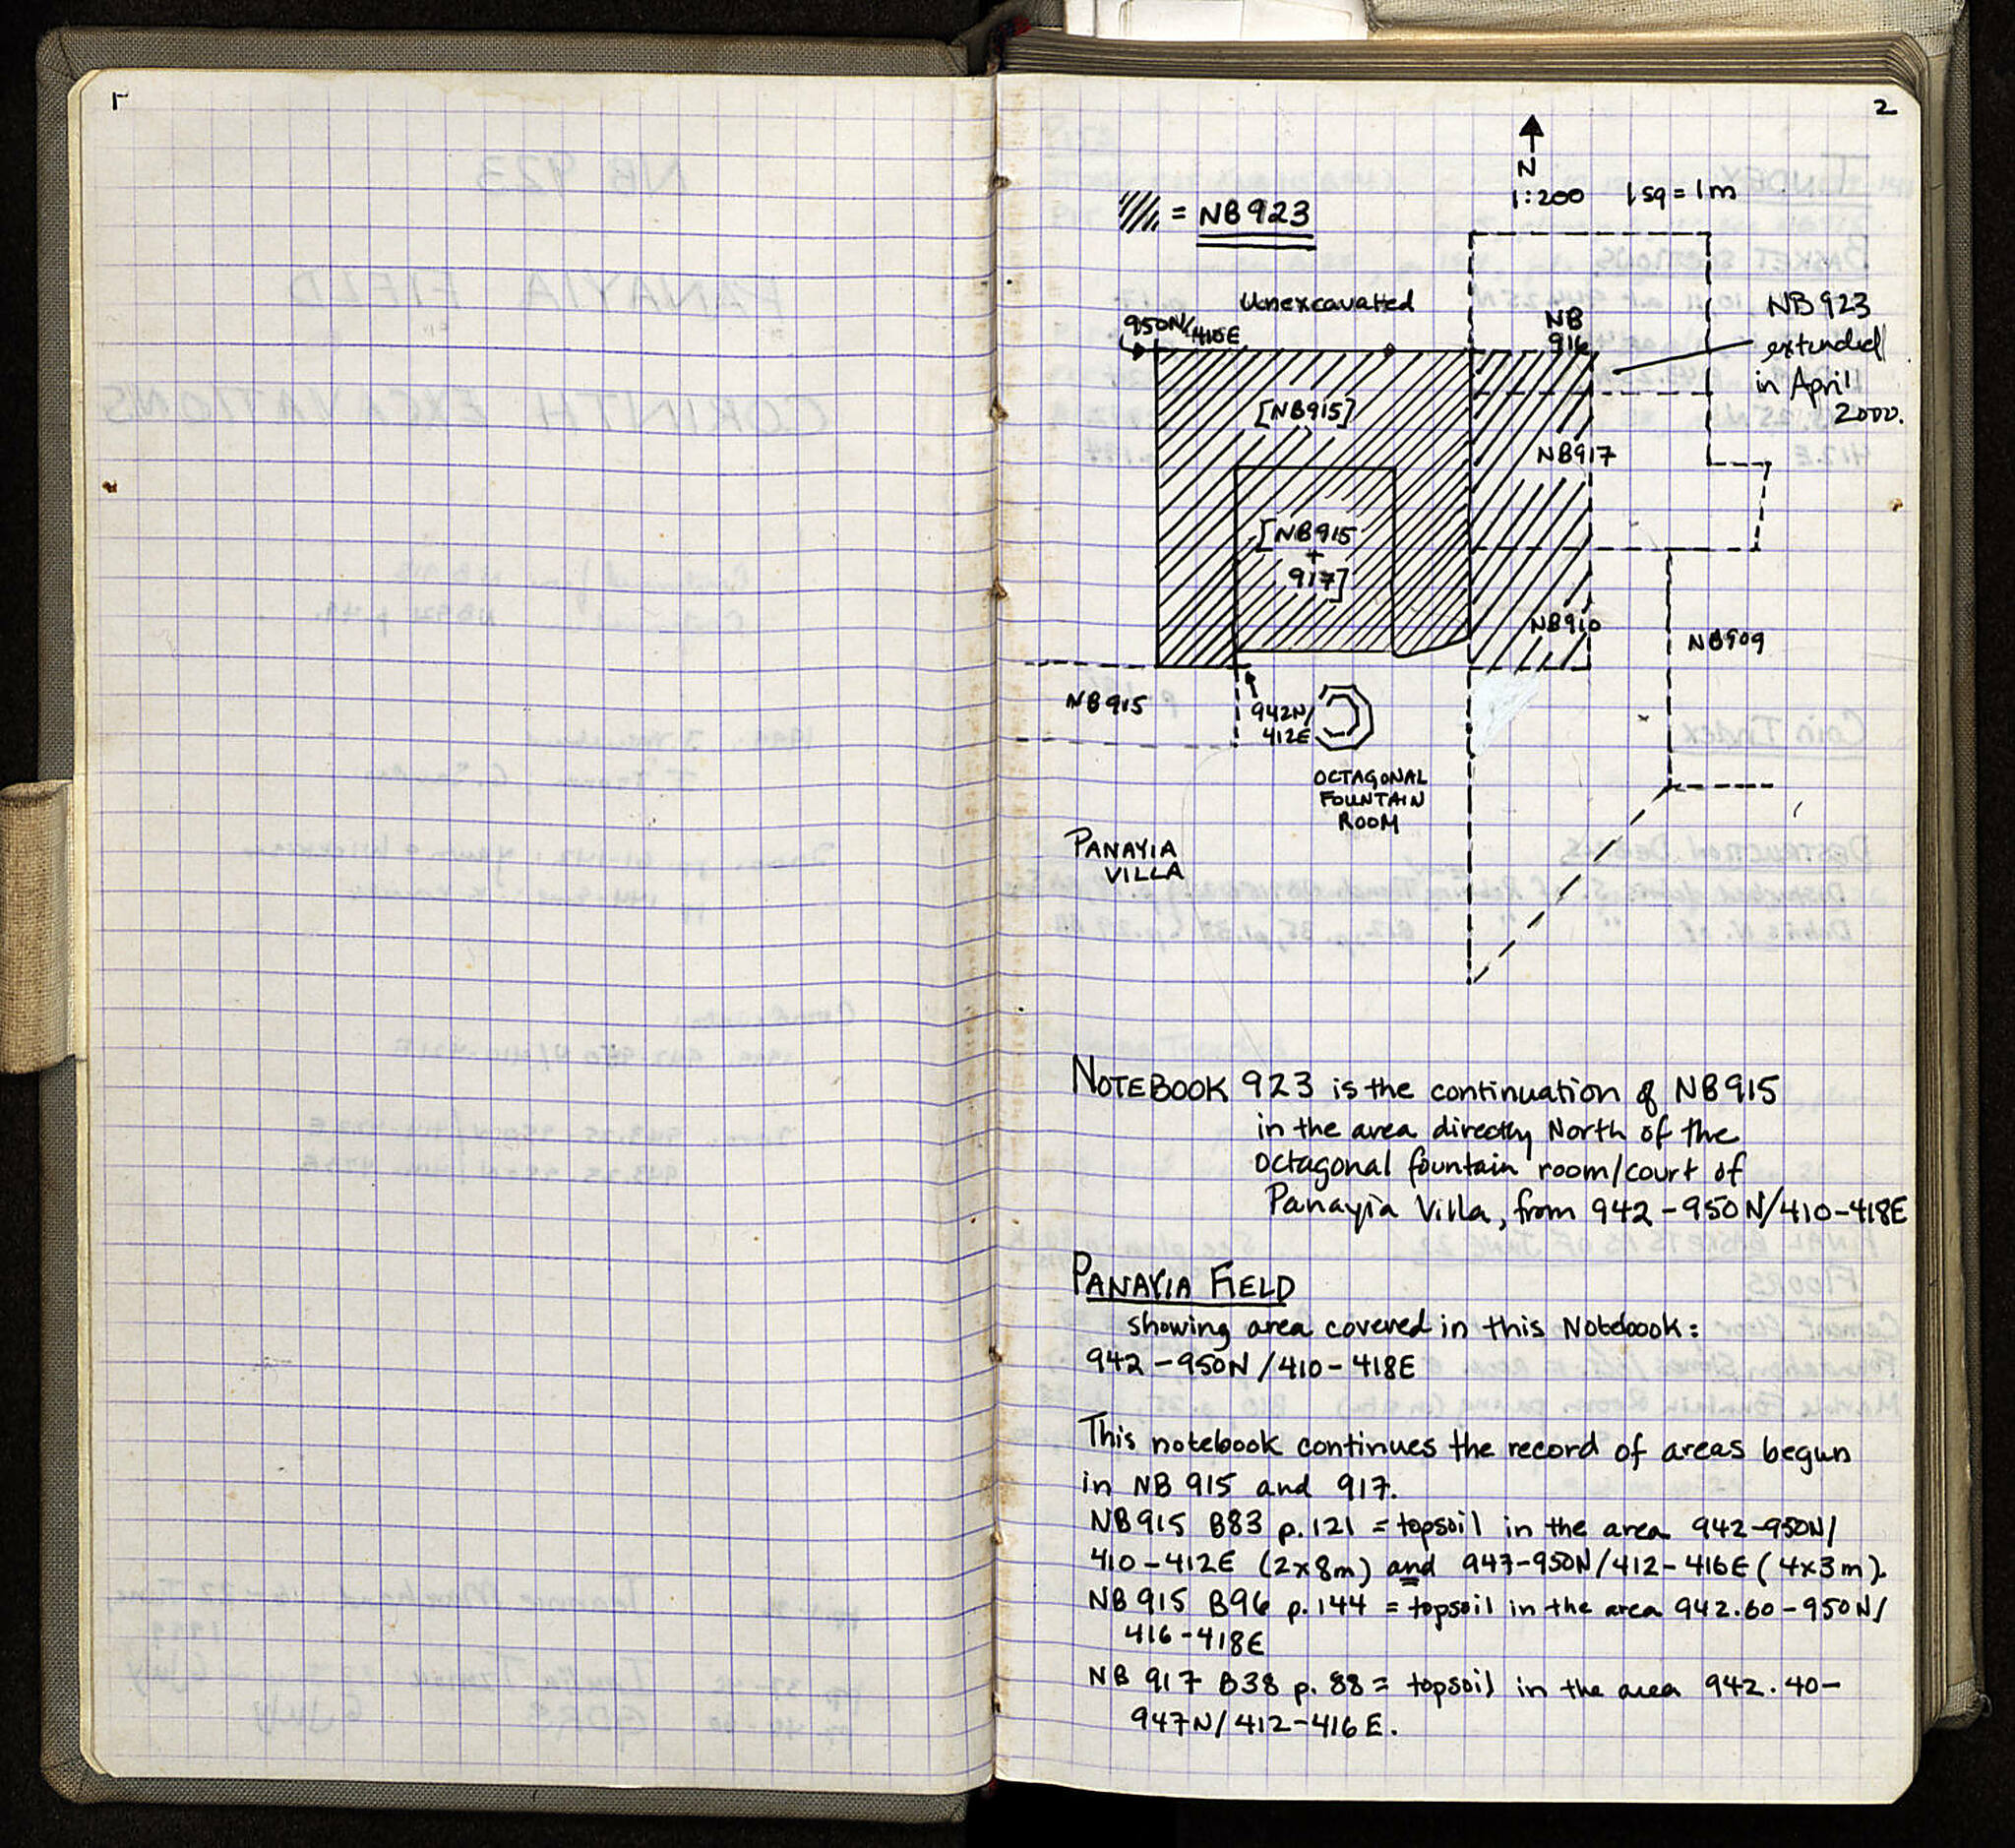 1
2
N
1:200 1 sq = 1m
= NB 923
Unexcavated
950N/410E
NB
916
NB 923
extended
in April
2000.
[NB915]
NB917
[NB915
+
917]
NB910
NB909
NB915
942N/
412E
OCTAGONAL
FOUNTAIN
ROOM
PANAYIA
VILLA
NOTEBOOK 923 is the continuation of NB915
in the area directly North of the
octagonal fountain room/court of
Panayia Villa, from 942-950N/410-418E
PANAYIA FIELD
showing area covered in this Notebook:
942-950N/410-418E
This notebook continues the record of areas begun
in NB 915 and 917.
NB915 B83 p.121 = topsoil in the area 942-950N/
410-412E (2x8m) and 947-950N/412-416E (4x3m).
NB 915 B96 p.144 = topsoil in the area 942.60-950N/
416-418E
NB 917 B38 p. 88 = topsoil in the area 942.40-
947N/412-416E.